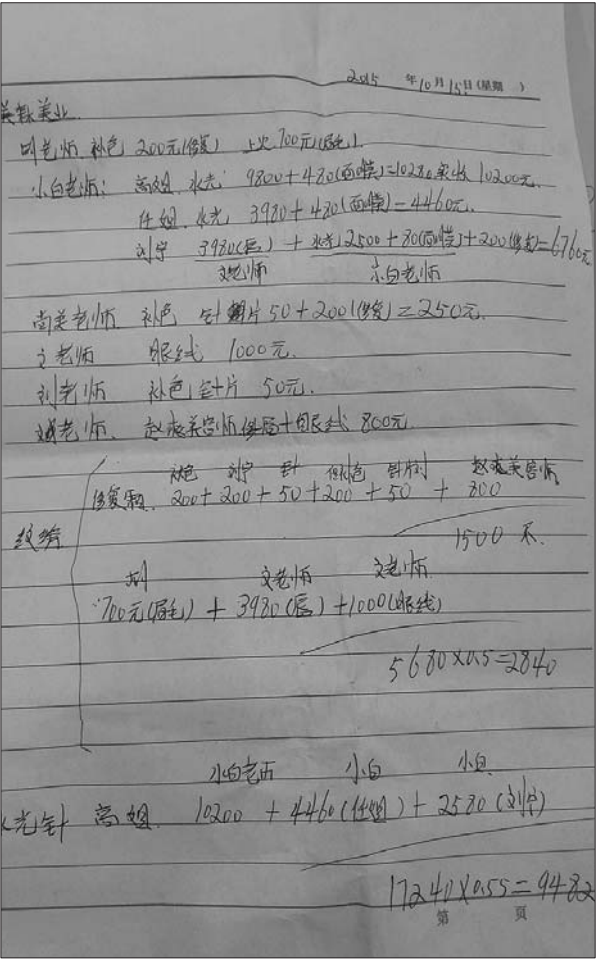 2015 年10月15日(星期 )
美業
老师 补色 200元(修复) 上次 700元(眉毛)
小白老师: 高姐 水光: 9800+480(面膜)=10280实收10200元.
任姐. 水光 3980+480(面膜)=4460元.
刘宁 3980(唇) + 水光2500+80(面膜)+200(修复)=6760元
文老师 小白老师
尚美老师. 补色 针片50+200(修复)=250元.
文老师 眼线 1000元.
刘老师 补色针片 50元.
老师. 赵 美容师 眉+眼线 800元.
补色 刘宁 针 补色 针片 赵 美容师
修复 200+200+50+200+50+800
纹绣
1500 不.
胡 文老师 文老师
700元(眉毛)+3980(唇)+1000(眼线)
5680×0.5=2840
小白老师 小白 小白
光针 高姐. 10200+4460(任姐)+2580(刘宁)
17240×0.55=9482
第 页